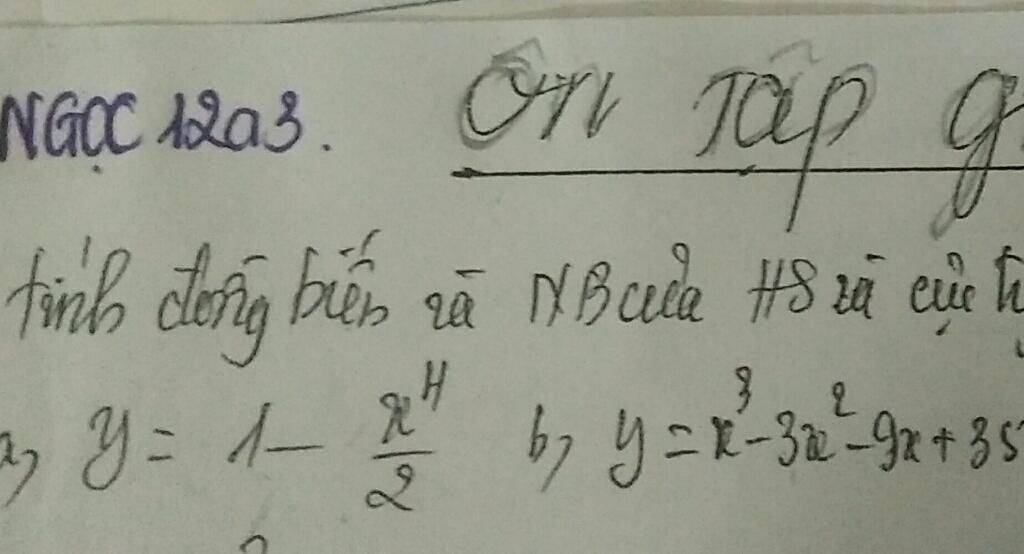 NGỌC 12a3. Ôn Tập
tính đồng biến và NB của HS và cực
a, y = 1 - x⁴/2 b, y = x³ - 3x² - 9x + 35